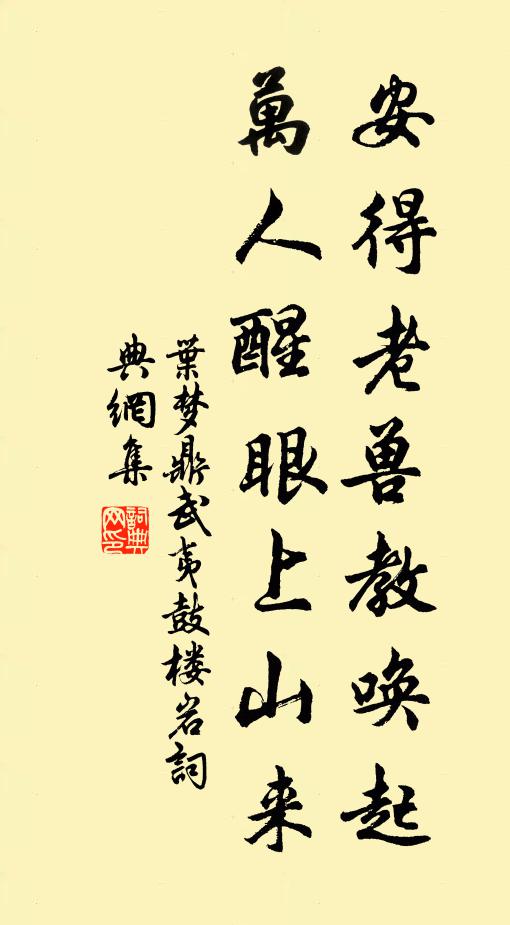 安得老兽教唤起
萬人醒眼上山来
葉梦鼎武夷鼓楼岩詞
典網集
詞典網印